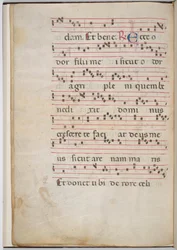 dam. Et bene. Ecce o
dor filii mei sicut o dor
agri ple ni quem be
nedi xit domi nus
crescere te faci at deus me
us sicut are nam ma ris
Et donet ti bi de rore celi